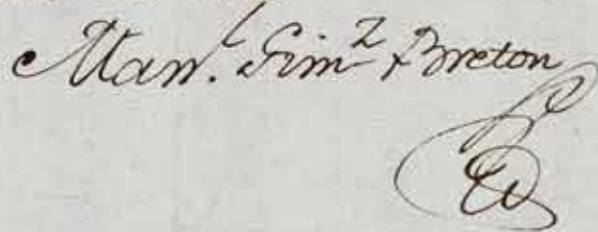 Man.l Gim.z Breton